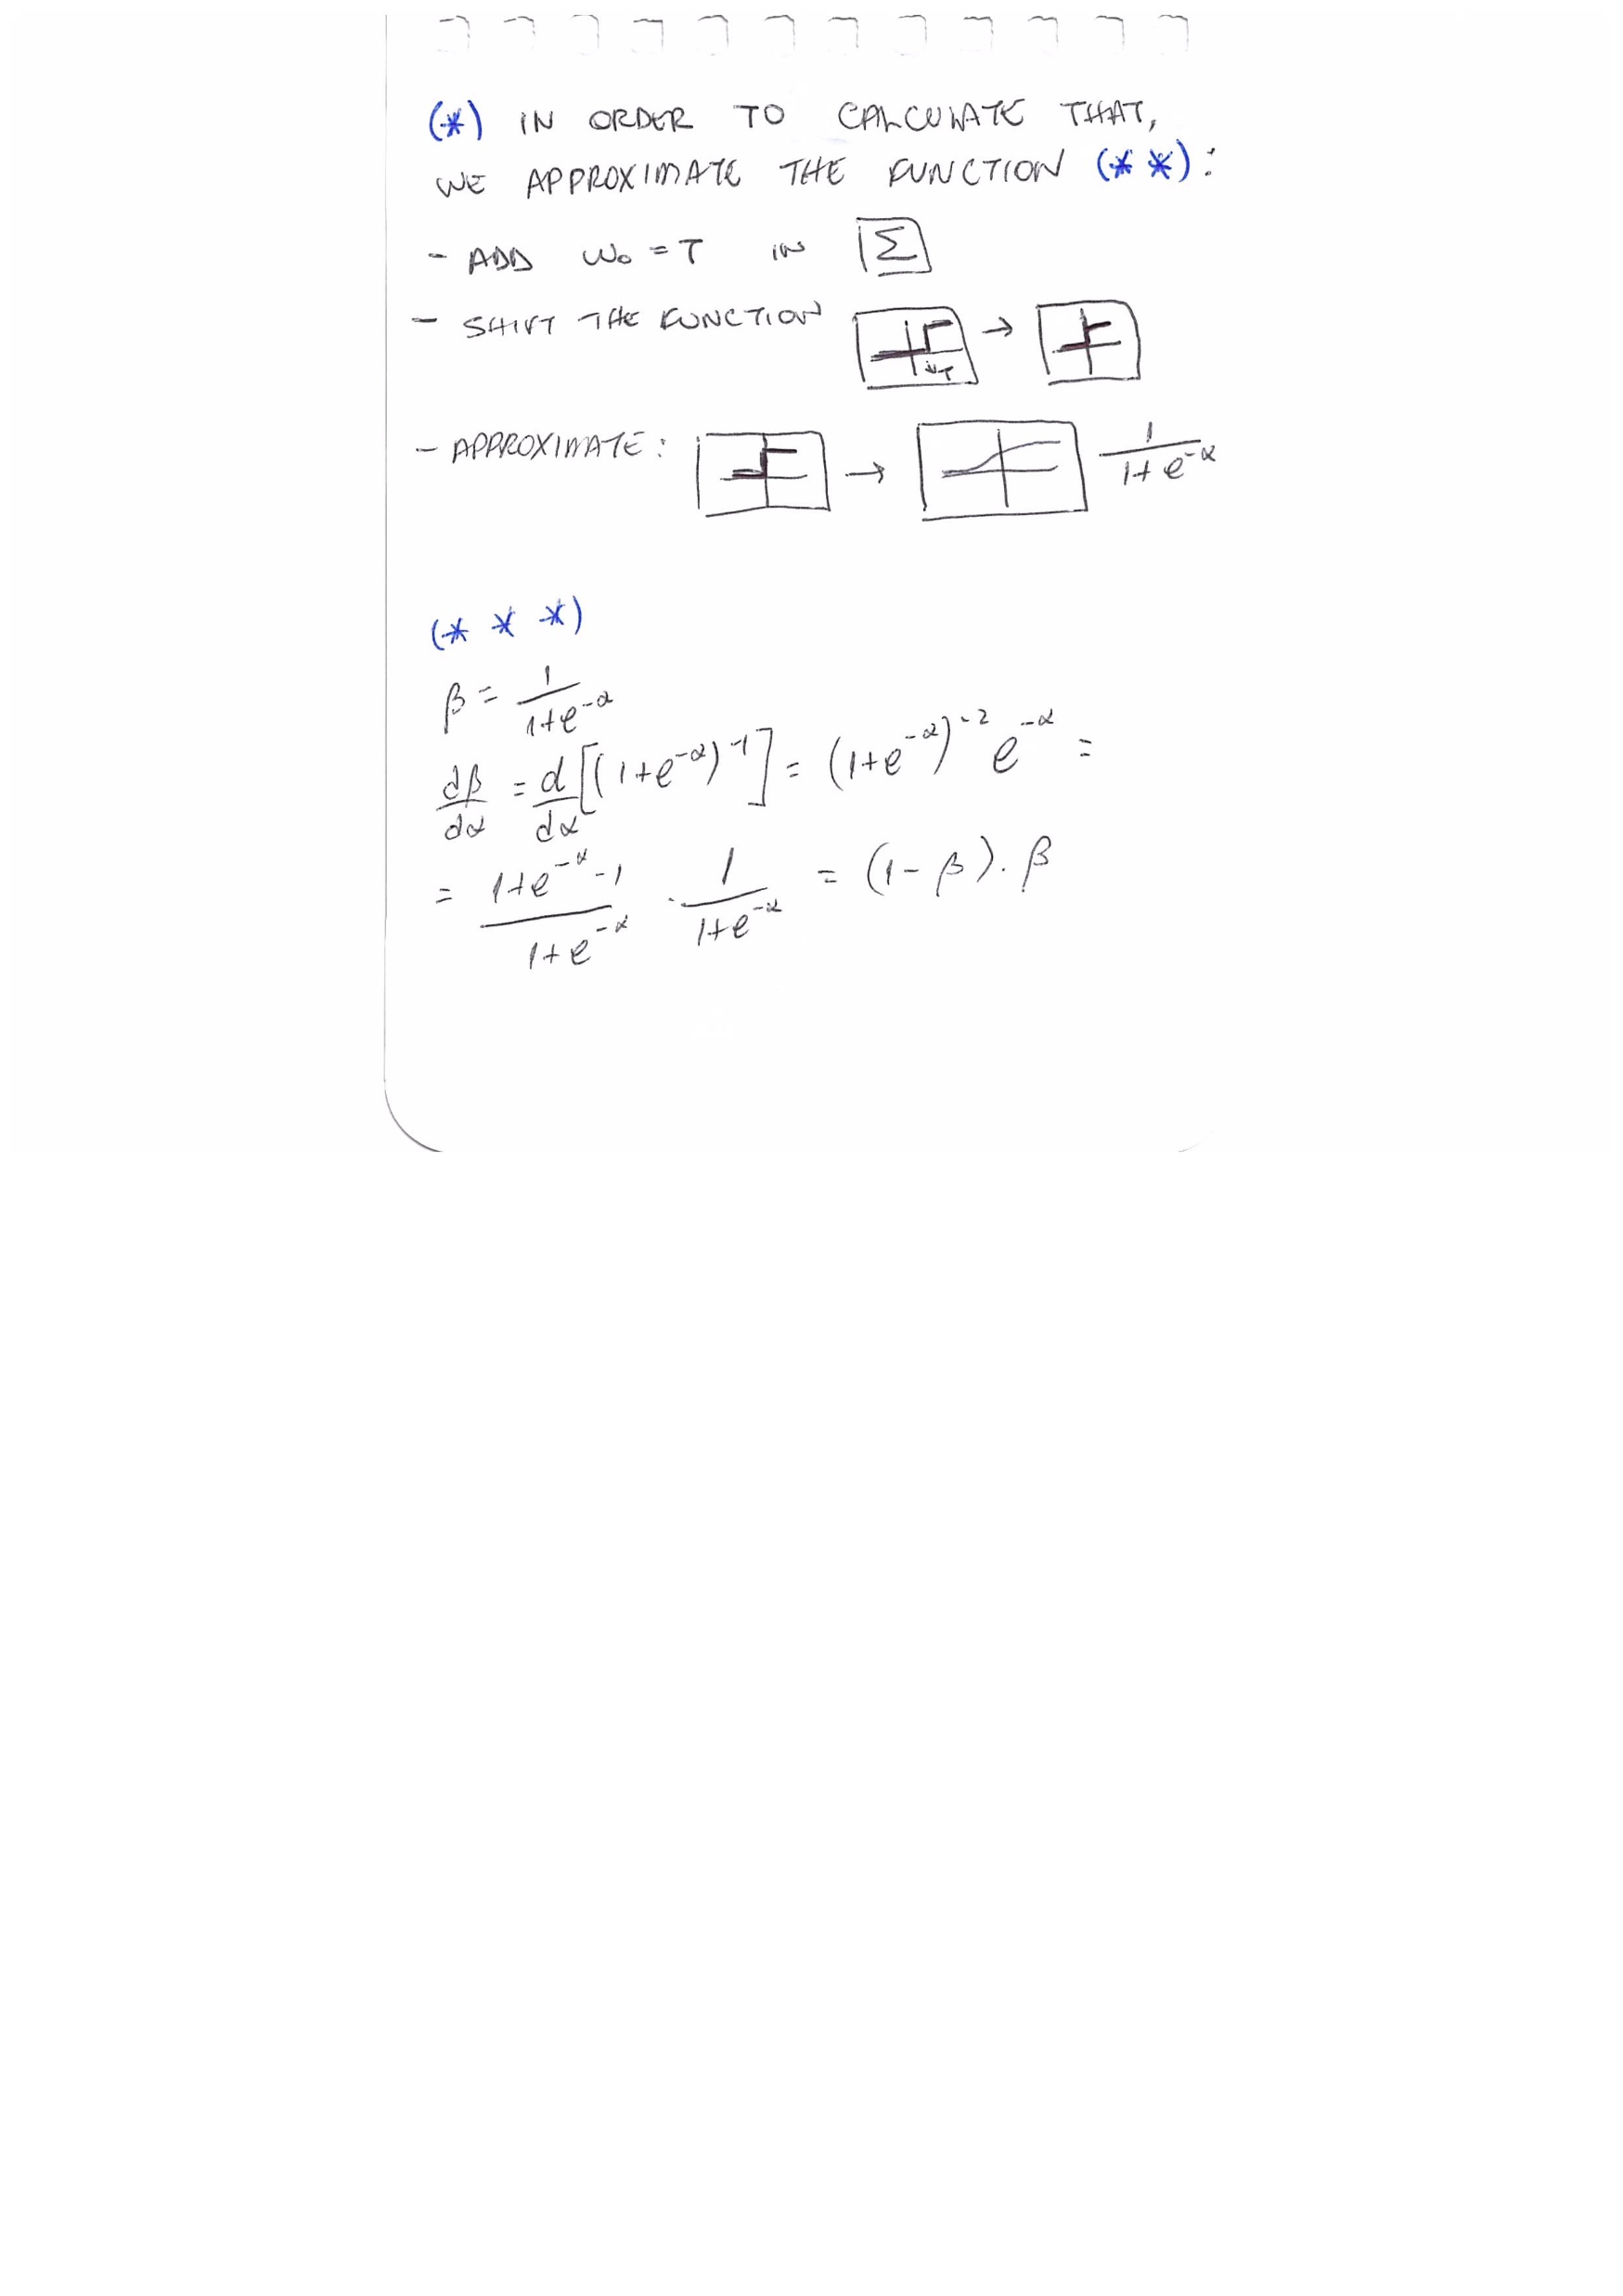 (*) IN ORDER TO CALCULATE THAT,
WE APPROXIMATE THE FUNCTION (* *):
- ADD W₀ = T IN Σ
- SHIFT THE FUNCTION T →
- APPROXIMATE: → 1/(1+e^-α)
(* * *)
β = 1/(1+e^-α)
dβ/dα = d/dα [(1+e^-α)^-1] = (1+e^-α)^-2 e^-α =
= (1+e^-α -1)/(1+e^-α) · 1/(1+e^-α) = (1-β)·β